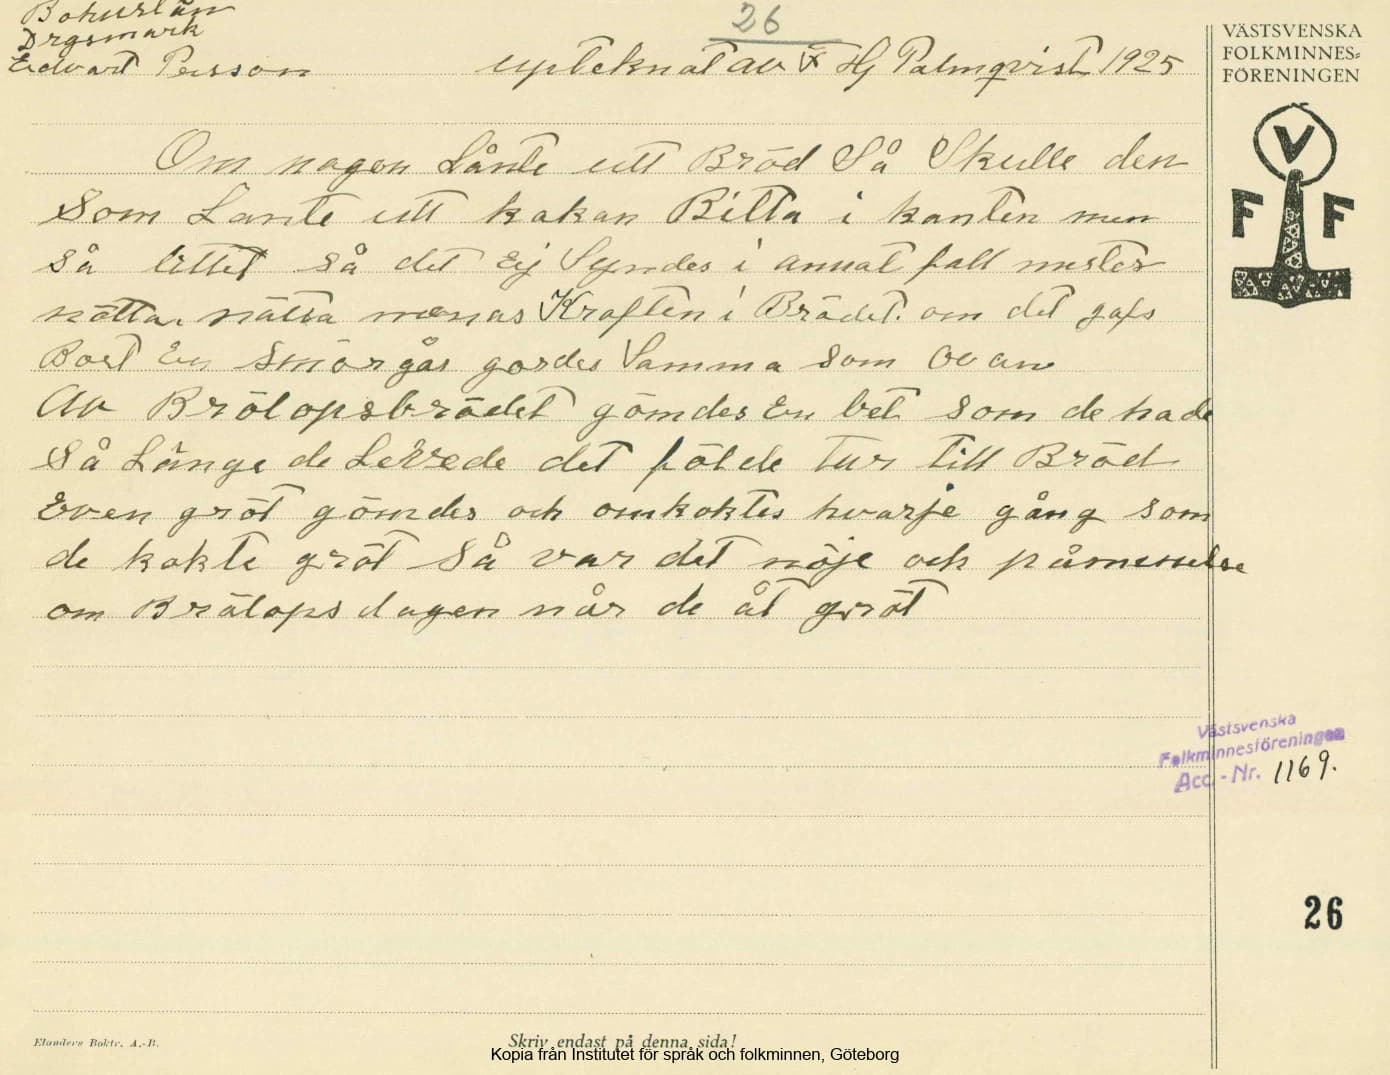 Bohuslän
26
Drgsmark
Edvart Person upteknat av Hj Palmqvist 1925
VÄSTSVENSKA
FOLKMINNES-
FÖRENINGEN
V
F F
Om nagon Lånte utt Bröd Så Skulle den
Som Lante utt kakan Bitta i kanten men
så littet så det Ej Syndes i annat fall mister
nötta. nätta menas Kraften i Brödet. om det gafs
Bort En Smörgås gordes Samma som Ovan
Av Brölopsbrödet gömdes En bet som de hade
Så Länge de Levede det földe tur till Bröd
Even gröt gömdes och omkoktes hvarje gång som
de kokte gröt Så var det nöje och påminelse
om Brölopsdagen når de åt gröt
Västsvenska
Folkminnesföreningen
Acc.-Nr. 1169.
26
Elanders Boktr. A.-B.
Skriv endast på denna sida!
Kopia från Institutet för språk och folkminnen, Göteborg